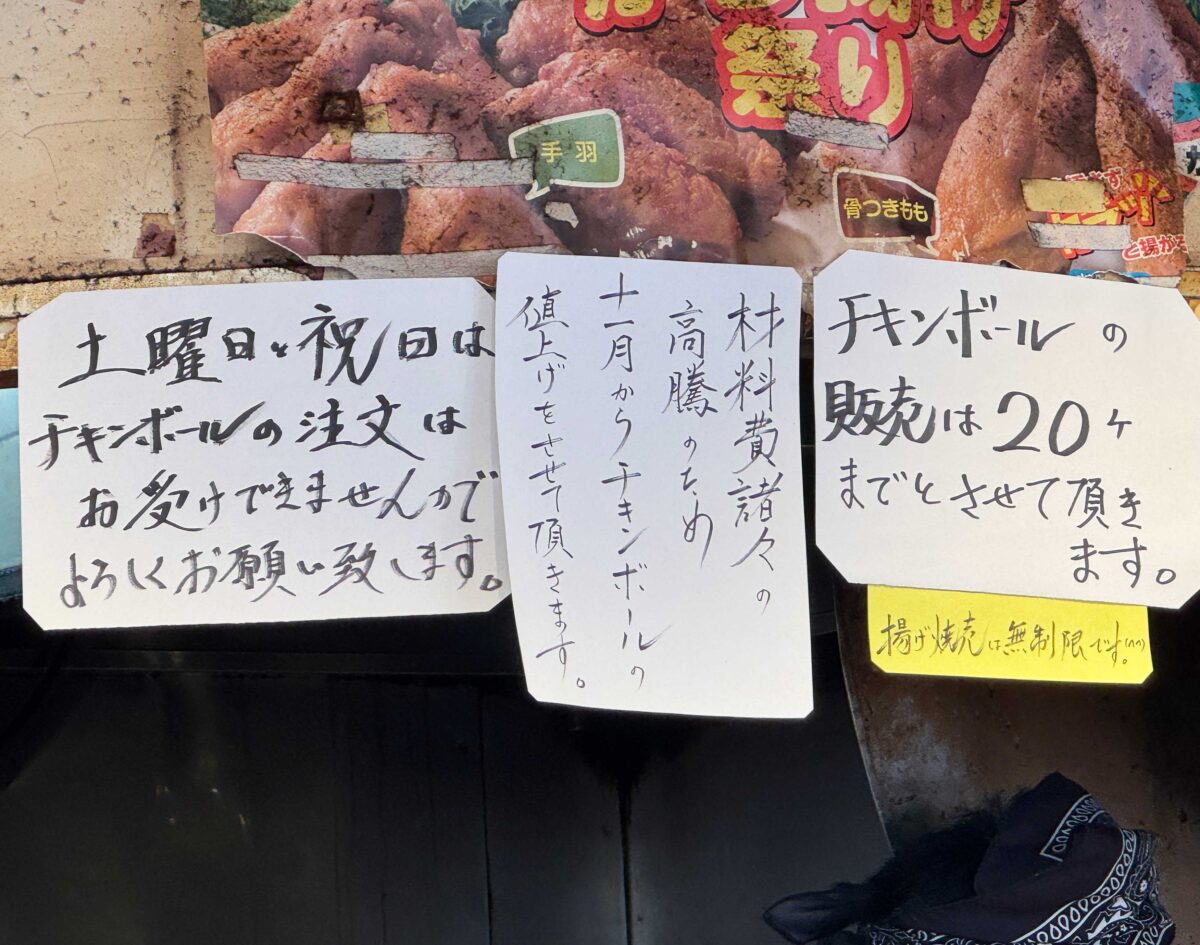 祭り
手羽
骨つきもも
と揚がる
土曜日と祝日は
チキンボールの注文は
お受けできませんので
よろしくお願い致します。
材料費諸々の
高騰のため
十一月からチキンボールの
値上げをさせて頂きます。
チキンボールの
販売は20ヶ
までとさせて頂き
ます。
揚げ焼売は無制限です。(^^)